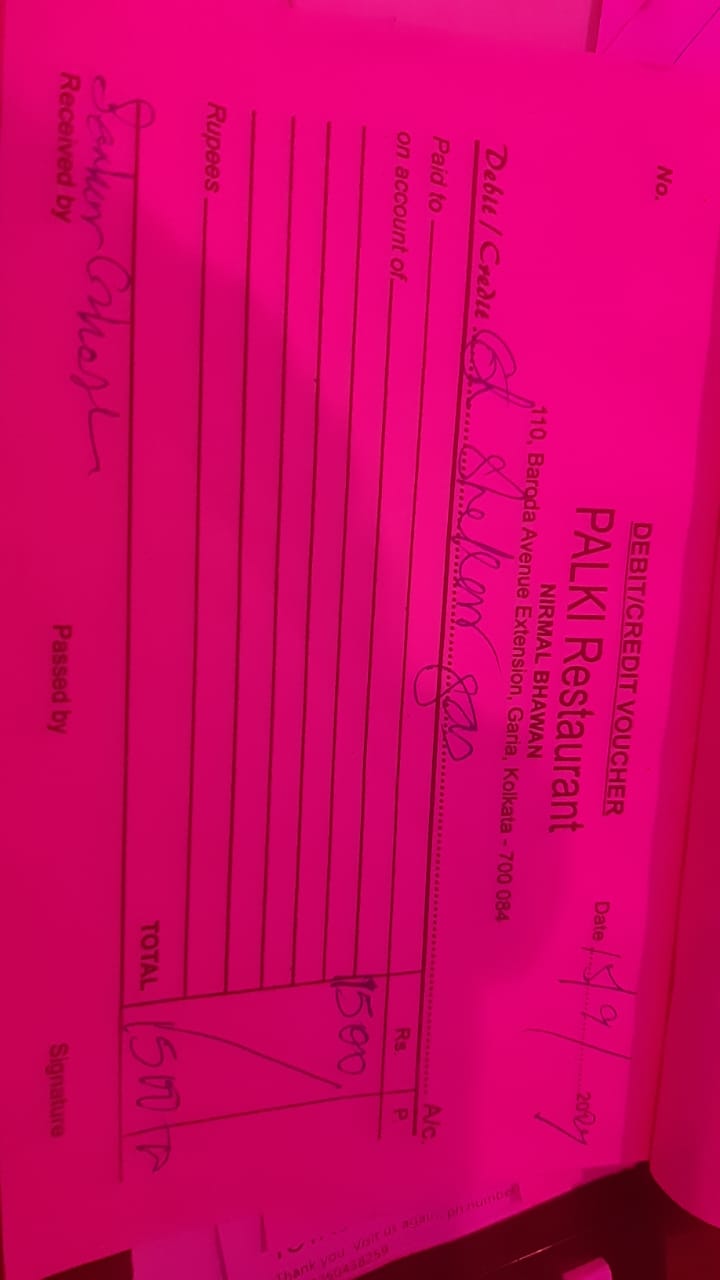 No.
DEBIT/CREDIT VOUCHER
PALKI Restaurant
NIRMAL BHAWAN
110, Baroda Avenue Extension, Garia, Kolkata - 700 084
Date 15/9/ 2024
Debit / Credit gas A/c.
Paid to
on account of Rs P
1500
Rupees
TOTAL 1500
Received by Passed by Signature
Thank you visit us again, ph.number